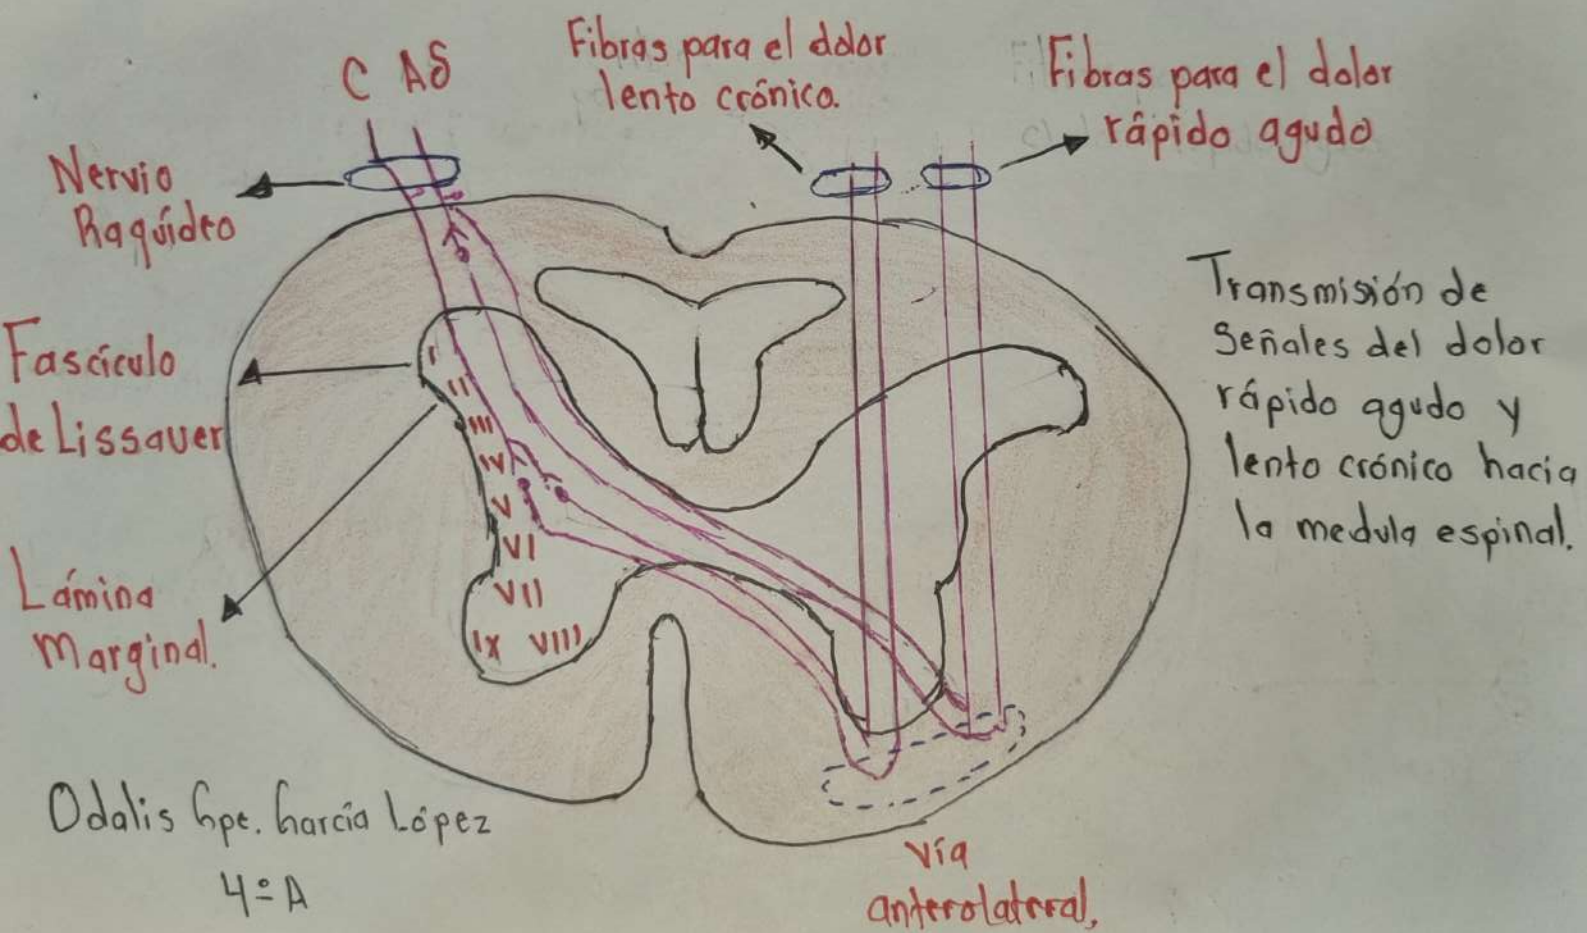 C Aδ
Fibras para el dolor
lento crónico.
Fibras para el dolor
rápido agudo
Nervio
Raquídeo
Fascículo
de Lissauer
Lámina
Marginal.
I
II
III
IV
V
VI
VII
IX VIII
Transmisión de
Señales del dolor
rápido agudo y
lento crónico hacia
la medula espinal.
Odalis Gpe. García López
4º A
Vía
anterolateral.